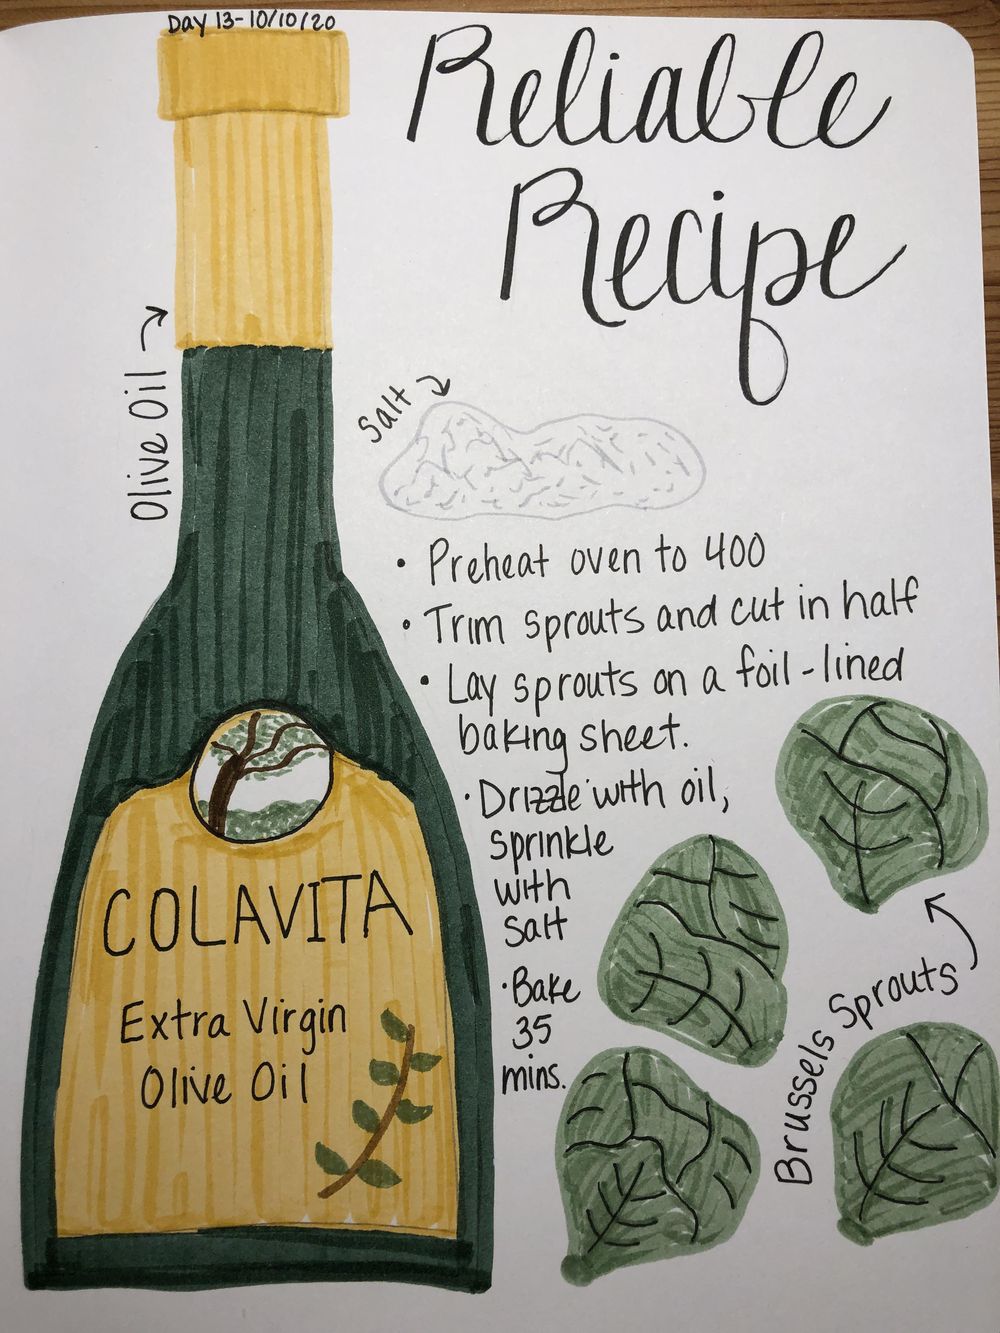 Day 13-10/10/20
Reliable
Recipe
Olive Oil
Salt
• Preheat oven to 400
• Trim sprouts and cut in half
• Lay sprouts on a foil-lined
baking sheet.
• Drizzle with oil,
sprinkle
with
salt
• Bake
35
mins.
COLAVITA
Extra Virgin
Olive Oil
Brussels Sprouts